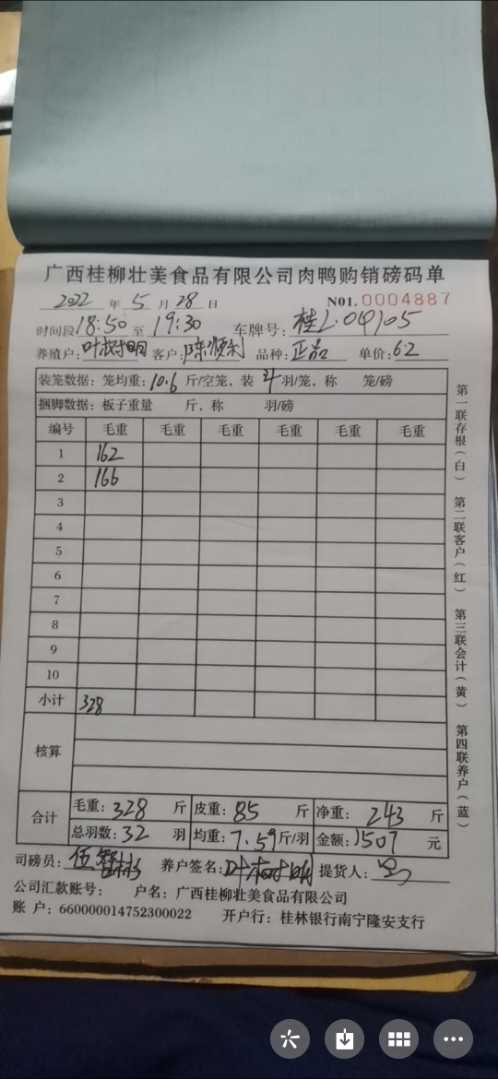 广西桂柳壮美食品有限公司肉鸭购销磅码单
2022 年 5 月 28 日 NO1.0004887
时间段 18:50 至 19:30 车牌号: 桂L·04105
养殖户: 叶树明 客户: 陈顺利 品种: 正品 单价: 62
装笼数据: 笼均重: 10.6 斤/空笼、装 4 羽/笼、称 笼/磅
捆脚数据: 板子重量 斤、称 羽/磅
编号 毛重 毛重 毛重 毛重 毛重 毛重
1 162
2 166
3
4
5
6
7
8
9
10
小计 328
核算
合计 毛重: 328 斤 皮重: 85 斤 净重: 243 斤
总羽数: 32 羽 均重: 7.59 斤/羽 金额: 1507 元
司磅员: 伍 养户签名: 叶树明 提货人:
公司汇款账号: 户名: 广西桂柳壮美食品有限公司
账 户: 660000014752300022 开户行: 桂林银行南宁隆安支行
第一联存根(白) 第二联客户(红) 第三联会计(黄) 第四联养户(蓝)